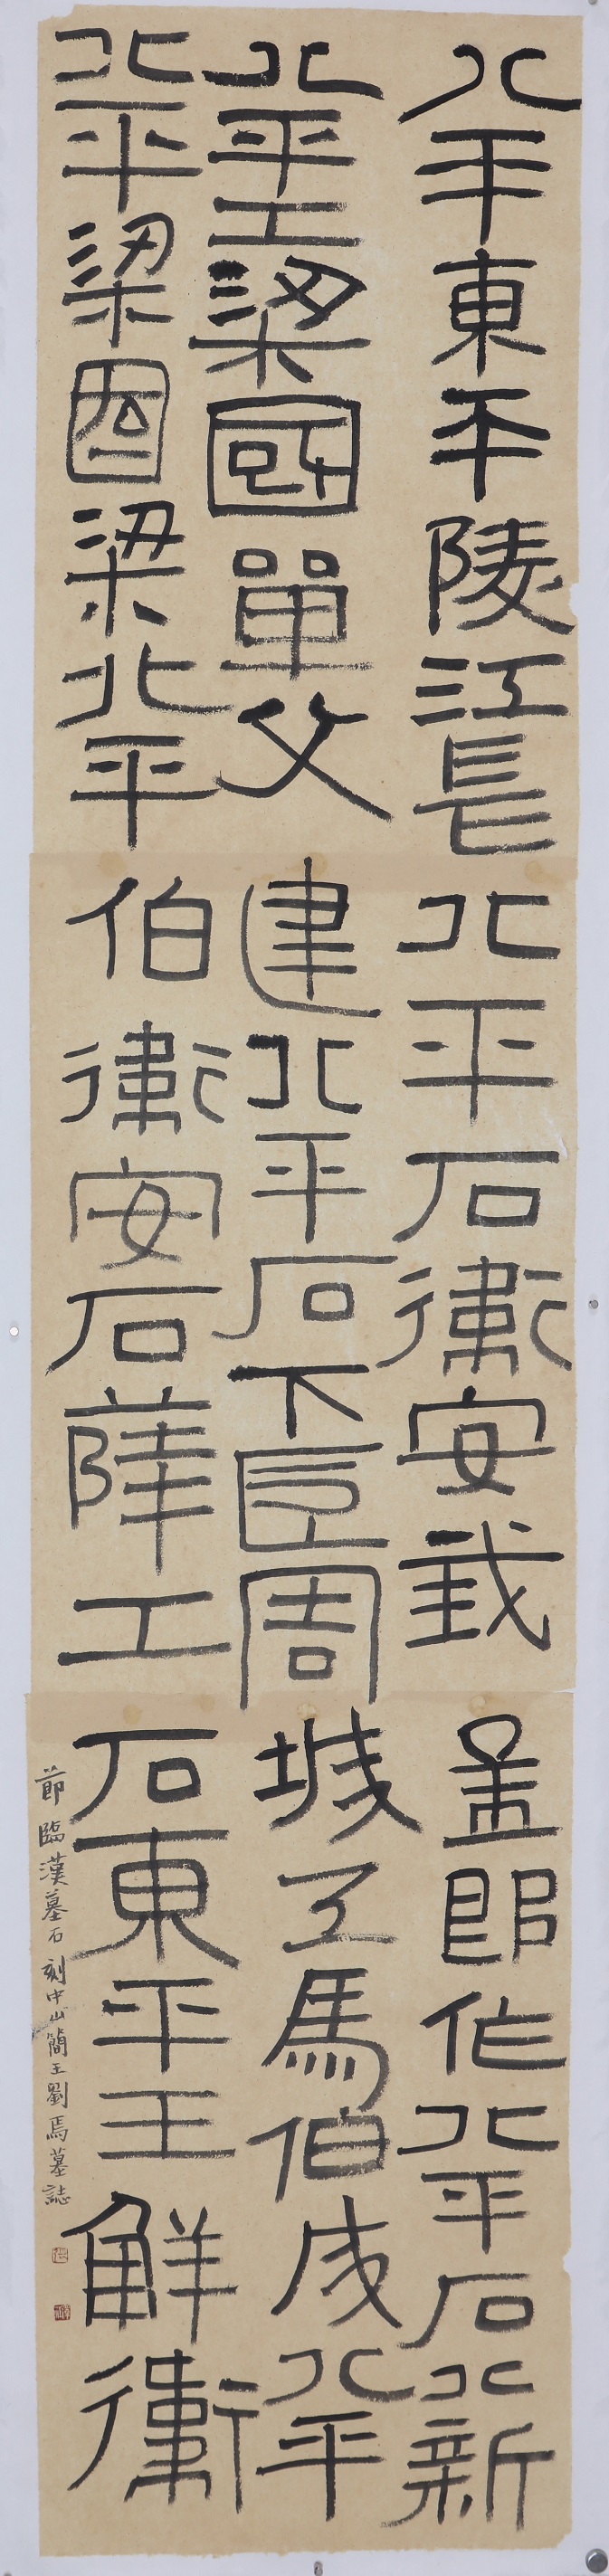 北平東平陵江長北平石衛安武孟郎作北平石北新
北平工梁國單父建北平石下長周城工馬伯成北平
北平梁國梁北平伯衛安石薛工石東平王鮮衛
節臨漢墓石刻中山簡王劉焉墓誌